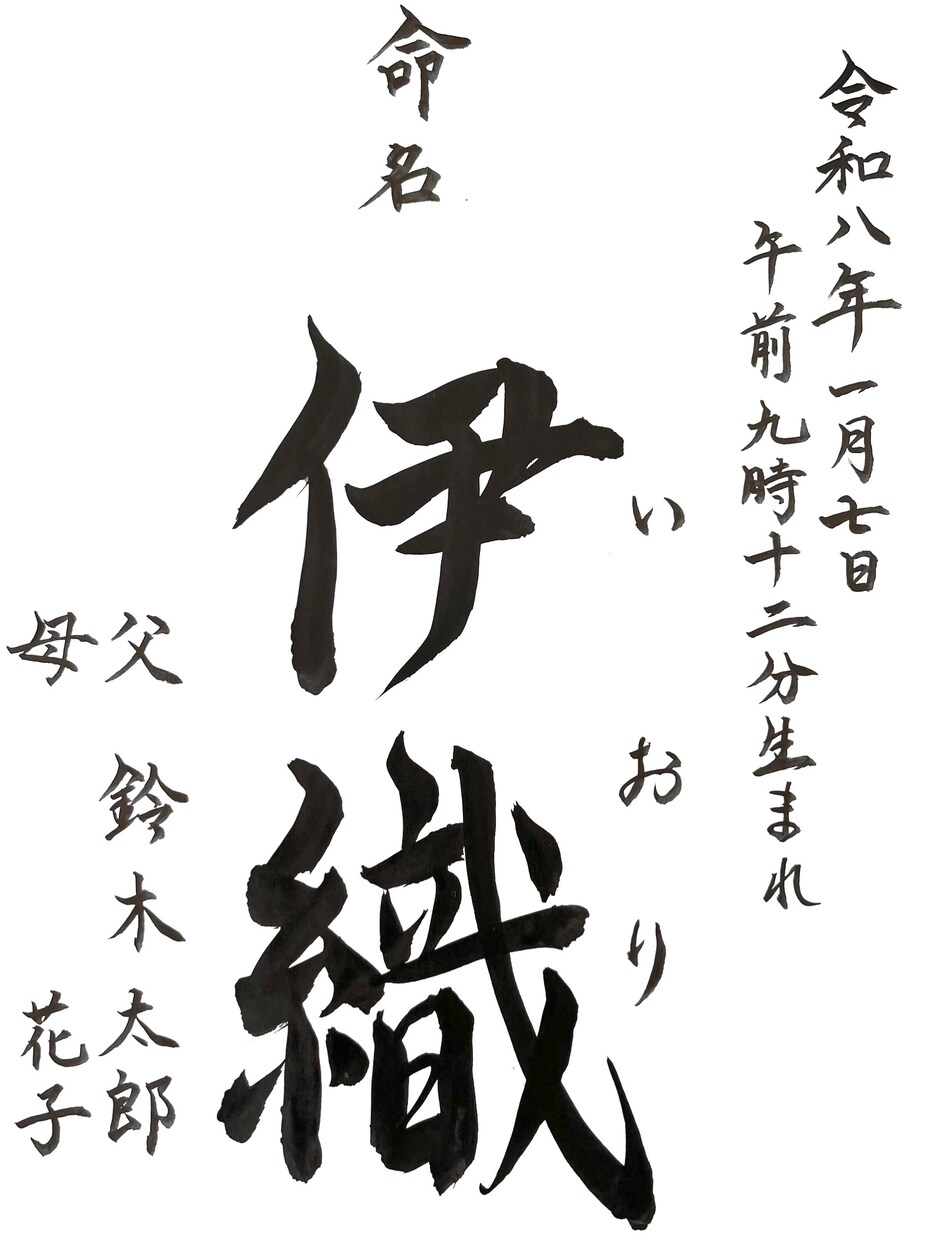 令和八年一月七日
午前九時十二分生まれ
命名
伊織
いおり
父 鈴木 太郎
母 花子